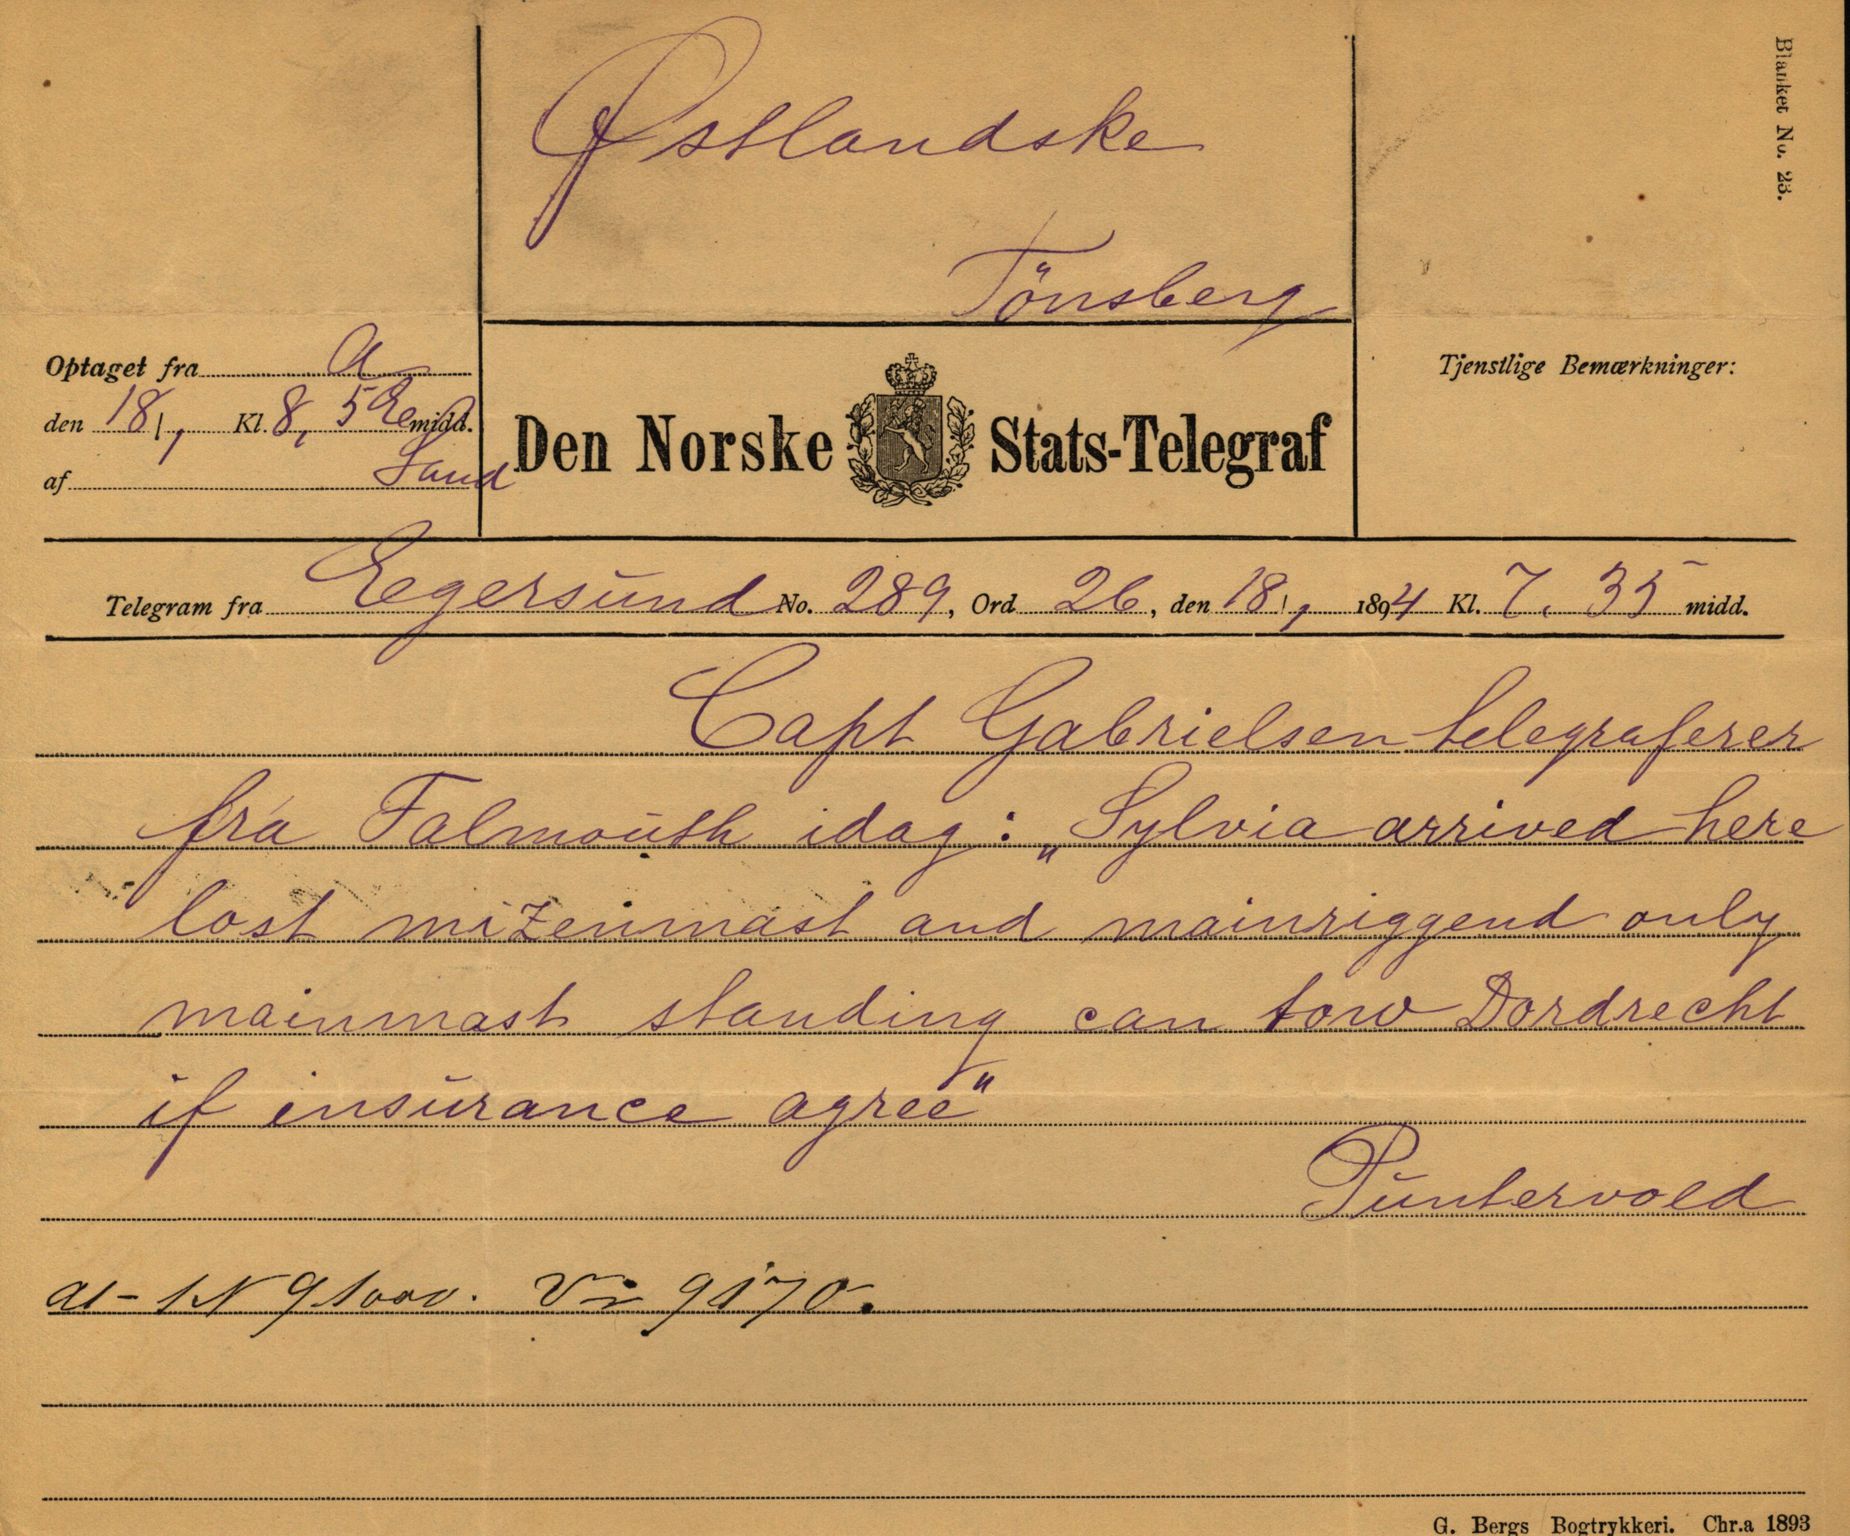 Blanket No. 23.
Østlandske
Tönsberg
Optaget fra a
den 18/1 Kl. 8,5 E midd.
af Sand
Den Norske Stats-Telegraf
Tjenstlige Bemærkninger:
Telegram fra Egersund No. 289, Ord 26, den 18/1 1894 Kl. 7.35 midd.
Capt Gabrielsen telegraferer
fra Falmouth idag: „Sylvia arrived here
lost mizenmast and mainriggend only
mainmast standing can tow Dordrecht
if insurance agree"
Puntervold
9170.
G. Bergs Bogtrykkeri. Chr.a 1893